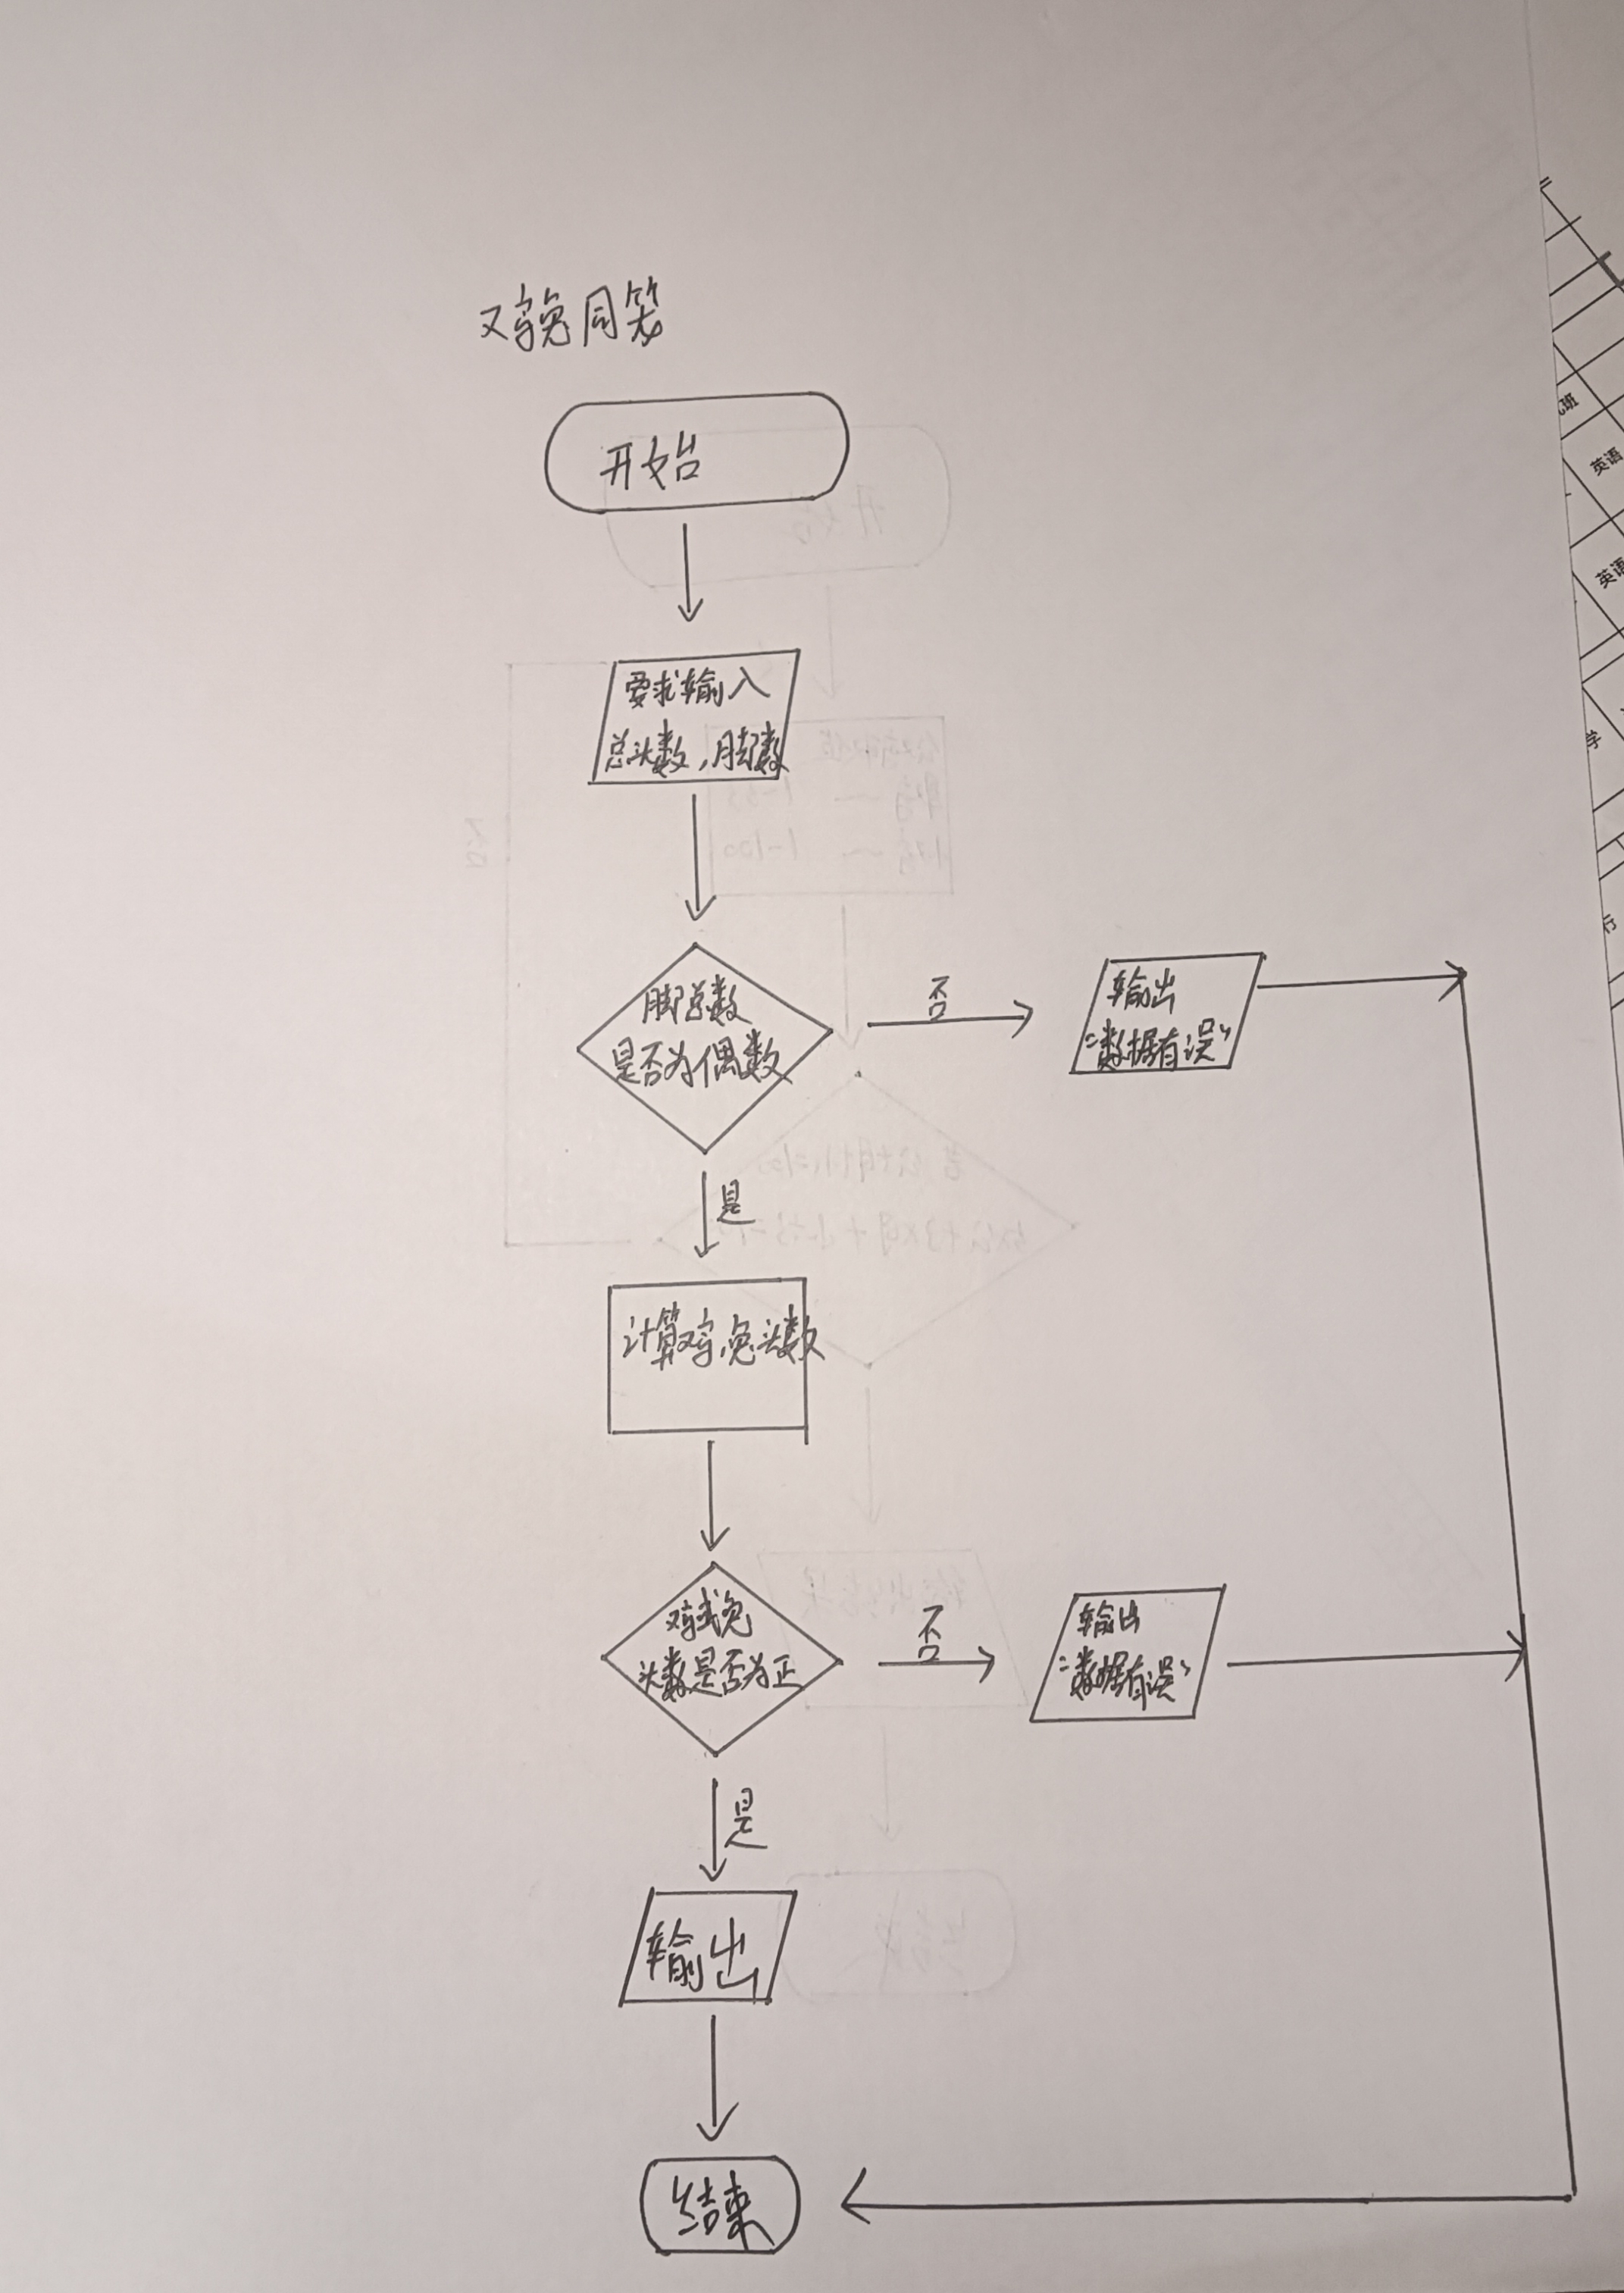 鸡兔同笼
开始
要求输入
总头数，脚数
脚总数
是否为偶数
否
输出
“数据有误”
是
计算鸡,兔头数
鸡或兔
头数是否为正
否
输出
“数据有误”
是
输出
结束
班
英语
英语
学
行